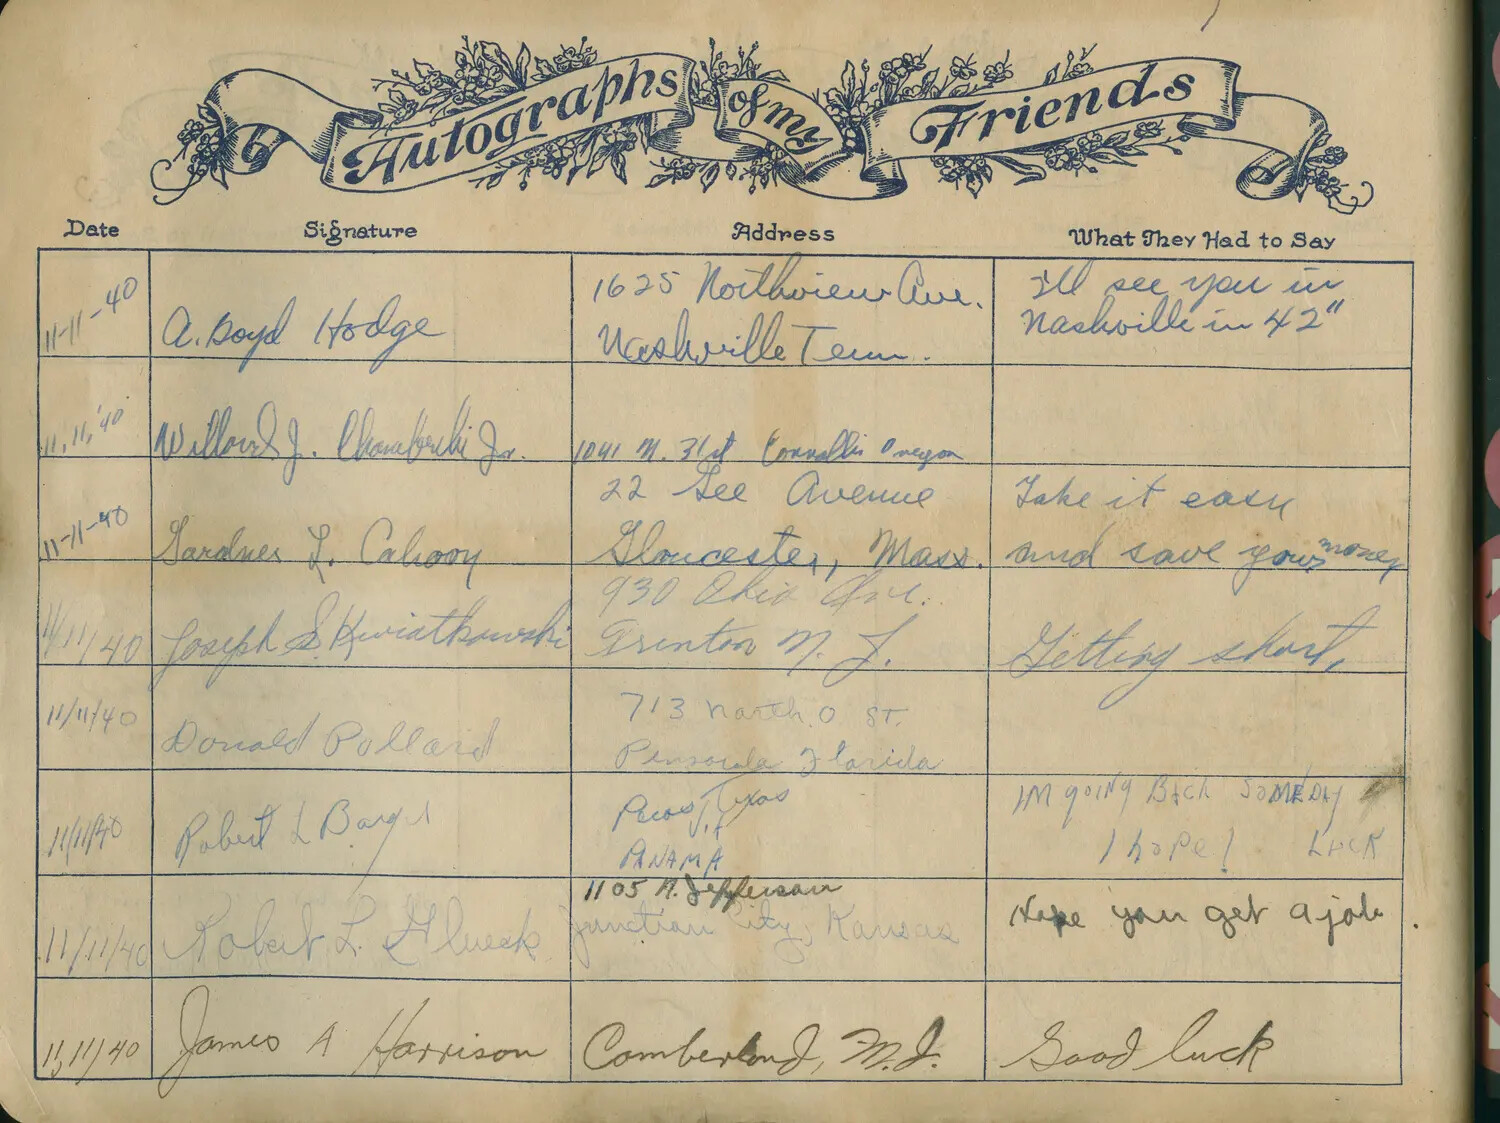 Autographs of my Friends
Date Signature Address What They Had to Say
11-11-40 A. Boyd Hodge 1625 Northview Ave. I'll see you in
Nashville Tenn. Nashville in 42"
11,11,'40 Willard J. Jr. 1041 N. 31st Corvallis Oregon
22 Gee Avenue Take it easy
11-11-40 Gardner L. Cahoon Gloucester, Mass. and save your money
930 Ohio Ave.
11/11/40 Joseph S. Kwiatkowski Trenton N. J. Getting short,
11/11/40 Donald Pollard 713 North O St.
Pensacola Florida
11/11/40 Robert L Pecos, Texas IM goINg BAck SoMEDAy
PANAMA I hoPe! LUcK
1105 N. Jefferson
11/11/40 Robert L. Glueck Junction City, Kansas Hope you get a job.
11,11/40 James A Harrison Comberlond, N.J. Good luck